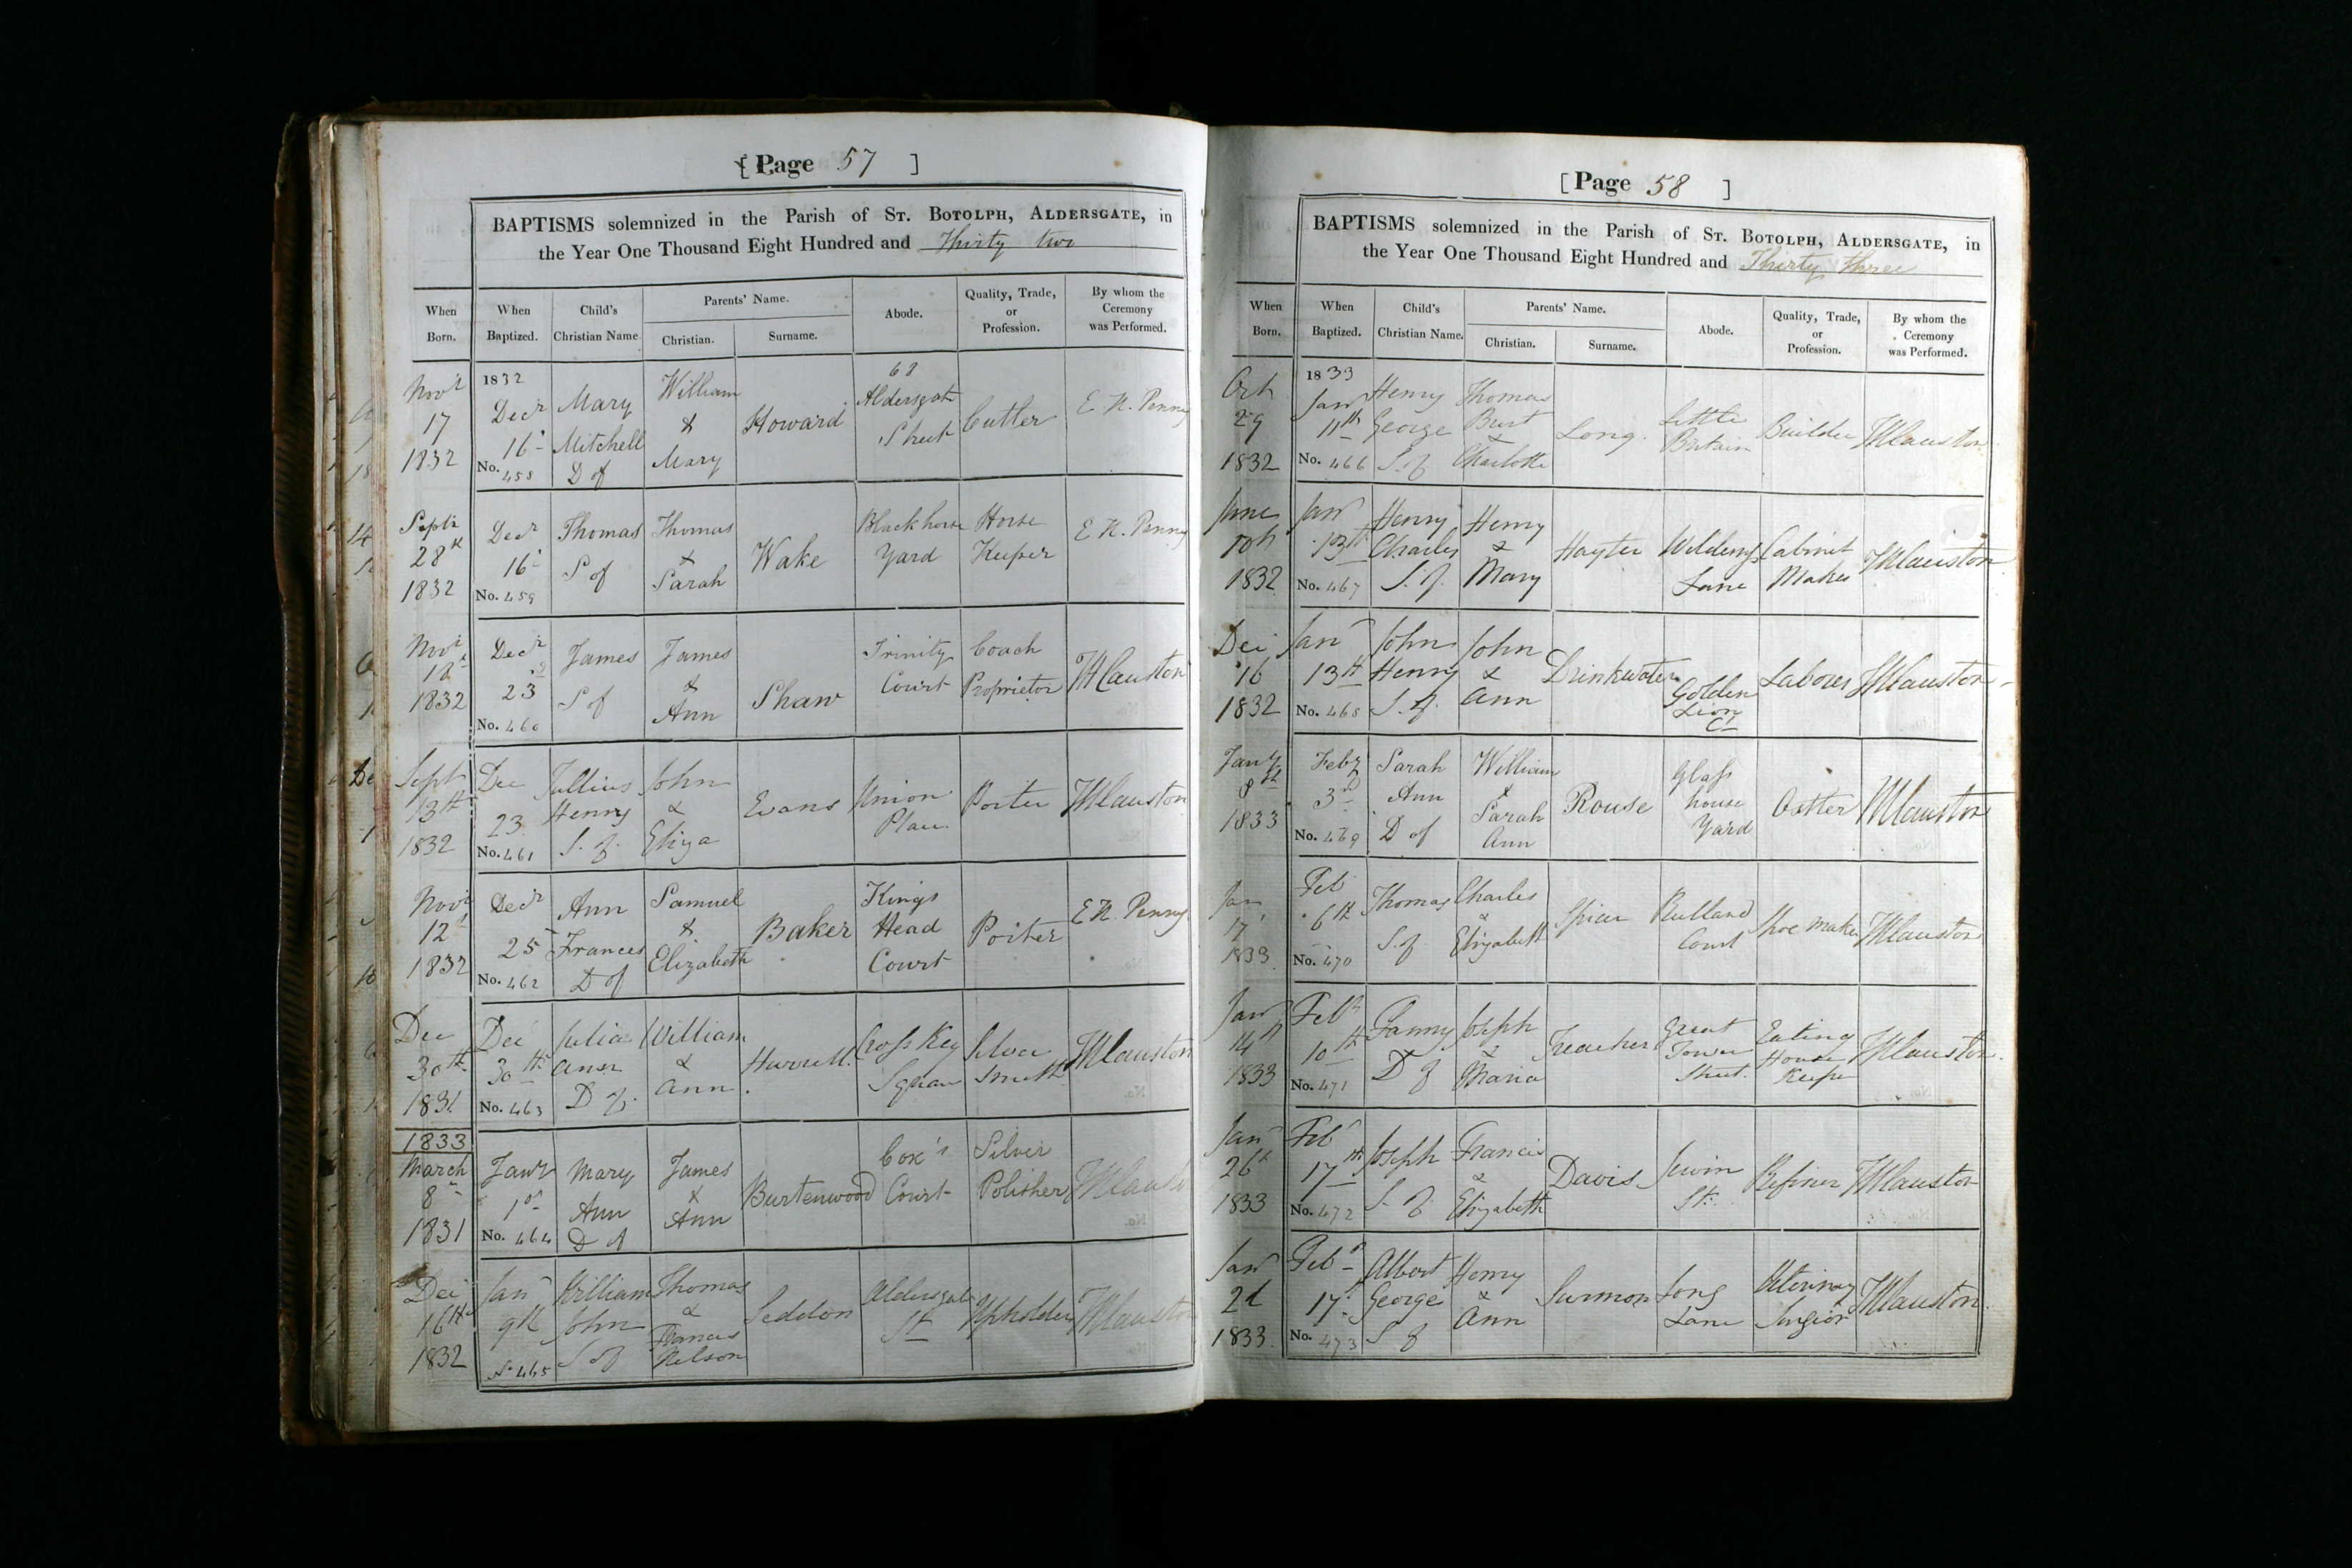 [ Page 57 ]
BAPTISMS solemnized in the Parish of ST. BOTOLPH, ALDERSGATE, in
the Year One Thousand Eight Hundred and Thirty two
When Born. When Baptized. Child's Christian Name Parents' Name. Christian. Surname. Abode. Quality, Trade, or Profession. By whom the Ceremony was Performed.
Novr 17 1832 1832 Decr 16 No. 458 Mary Mitchell D of William & Mary Howard 68 Aldersgate Street Cutler E N. Penny
Septr 28th 1832 Decr 16 No. 459 Thomas S of Thomas & Sarah Wake Blackhorse Yard Horse Keeper E N. Penny
Novr 18 1832 Decr 23 No. 460 James S of James & Ann Shaw Trinity Court Coach Proprietor Causton
Sept 13th 1832 Dec 23 No. 461 Jullius Henry S. of John & Eliza Evans Union Place Porter Causton
Novr 12 1832 Decr 25 No. 462 Ann Frances D of Samuel & Elizabeth Baker Kings Head Court Porter E N. Penny
Dec 30th 1831 Dec 30th No. 463 Julia Ann D of William & Ann Cross Key Square Silver Smith Causton
1833
March 8 1831 Jany 1st No. 464 Mary Ann D of James & Ann Burtenwood Cox's Court Silver Polisher Causton
Dec 16th 1832 Jany 9th No 465 William John S of Thomas & Frances Nelson Seddon Aldersgate St Upholder Causton
[ Page 58 ]
BAPTISMS solemnized in the Parish of ST. BOTOLPH, ALDERSGATE, in
the Year One Thousand Eight Hundred and Thirty three
When Born. When Baptized. Child's Christian Name. Parents' Name. Christian. Surname. Abode. Quality, Trade, or Profession. By whom the Ceremony was Performed.
Oct 29 1832 1833 Jany 11th No. 466 Henry George S. of Thomas Burt & Charlotte Long Little Britain Builder Causton
June 10th 1832 Jany 13th No. 467 Henry Charles S. of Henry & Mary Hayter Lane Cabinet Maker Causton
Dec 16 1832 Jany 13th No. 468 John Henry S. of John & Ann Drinkwater Golden Lion Ct Labourer Causton
Jany 8th 1833 Feby 3rd No. 469 Sarah Ann D of William & Sarah Ann Rouse Glass house Yard Ostler Causton
Jan 17 1833 Feb 6th No. 470 Thomas S. of Charles & Elizabeth Spicer Rutland Court Shoe Maker Causton
Jany 14th 1833 Feby 10th No. 471 Fanny D of Joseph & Maria Treacher Great Tower Street. Eating House Keeper Causton
Jany 26th 1833 Feby 17th No. 472 Joseph S. of Francis & Elizabeth Davis Jewin St. Refiner Causton
Jany 21 1833 Feby 17 No. 473 Albert George S of Henry & Ann Surmon Long Lane Causton